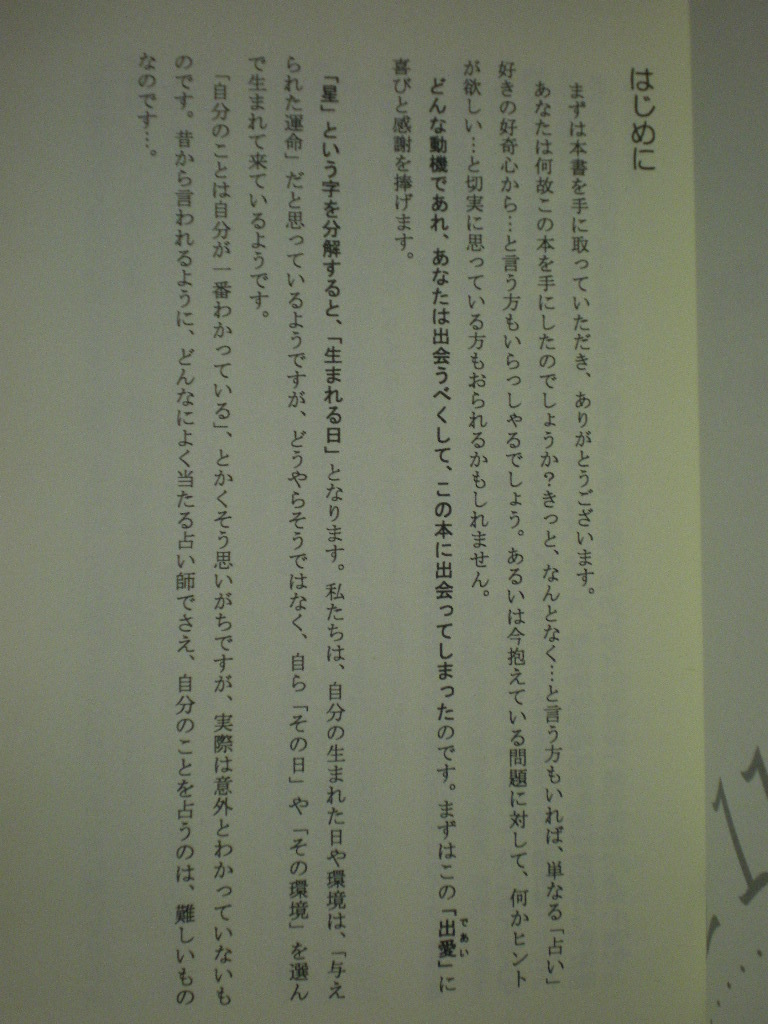 はじめに
まずは本書を手に取っていただき、ありがとうございます。
あなたは何故この本を手にしたのでしょうか？きっと、なんとなく…と言う方もいれば、単なる「占い」
好きの好奇心から…と言う方もいらっしゃるでしょう。あるいは今抱えている問題に対して、何かヒント
が欲しい…と切実に思っている方もおられるかもしれません。
どんな動機であれ、あなたは出会うべくして、この本に出会ってしまったのです。まずはこの「出愛」に
であい
喜びと感謝を捧げます。
「星」という字を分解すると、「生まれる日」となります。私たちは、自分の生まれた日や環境は、「与え
られた運命」だと思っているようですが、どうやらそうではなく、自ら「その日」や「その環境」を選ん
で生まれて来ているようです。
「自分のことは自分が一番わかっている」、とかくそう思いがちですが、実際は意外とわかっていないも
のです。昔から言われるように、どんなによく当たる占い師でさえ、自分のことを占うのは、難しいもの
なのです…。